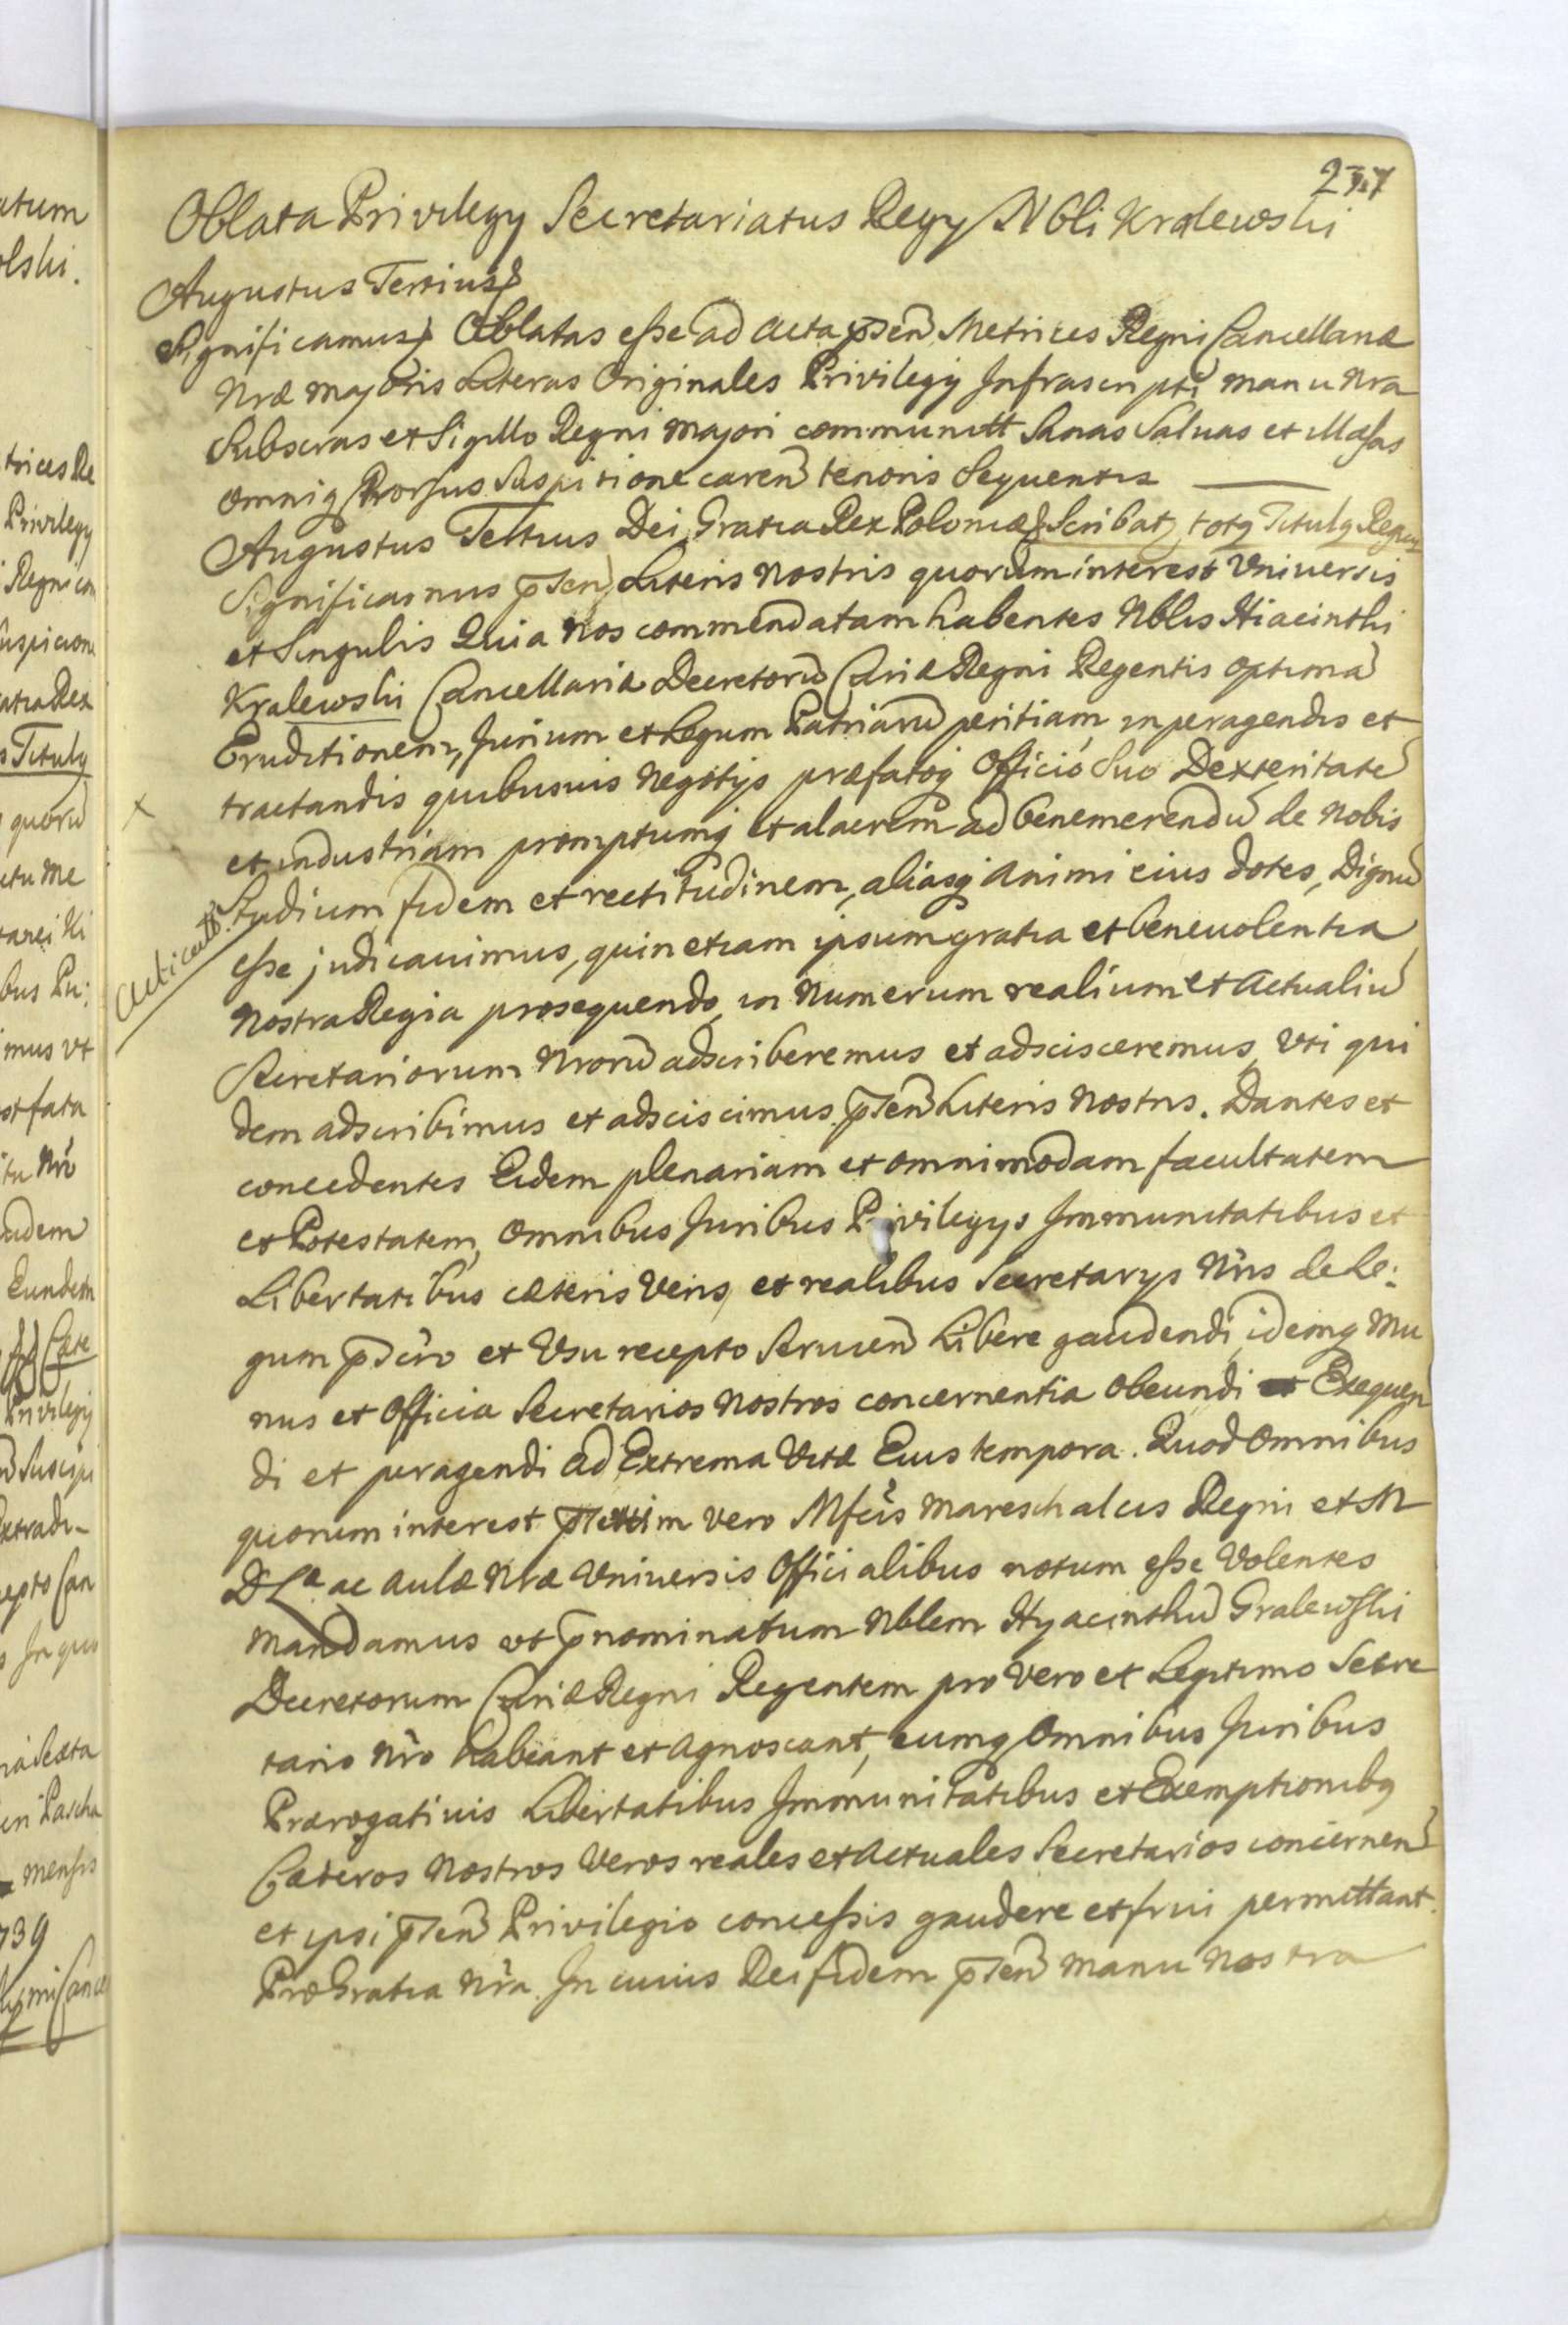 237
Oblata Privilegy Secretariatus Regy Nbli Kralewski
Augustus Tertius
Significamus Oblatas esse ad acta pñsen Metrices Regni Cancellariæ
Nræ majoris Literas Originales Privilegij Infrascripti manu Nra
Subscras et Sigillo Regni majori communitt Sanas Saluas et illæsas
omniq Prorsus Suspitione caren tenoris Sequentis
Augustus Tertius Dei Gratia Rex Poloniæ Scribat totq Titulq Regius
Significamus pñsen Literis Nostris quorum interest Vniuersis
et Singulis Quia Nos commendatam habentes Nblis Hiacinthi
Kralewski Cancellariæ Decretorū Cariæ Regni Regentis optimā
Eruditionem, Jurium et Legum Patriarū peritiam, in peragendis et
tractandis quibusuis Negotijs præfatoq Officio Suo Dexteritatē
et industriam promptumq et alacrem ad benemerendū de Nobis
Studium fidem et rectitudinem, aliasq animi eius dotes, Dignū
esse judicauimus, quin etiam ipsum gratia et beneuolentia
Nostra Regia prosequendo in Numerum realium et Actualiū
Secretariorum Nrorū adscriberemus et adscisceremus, Vti qui
dem adscribimus et adsciscimus pñsen Literis Nostris. Dantes et
concedentes Eidem plenariam et omnimodam facultatem
et Potestatem, omnibus Juribus Privilegys Immunitatibus et
Libertatibus cæteris Veris, et realibus Secretarys Nris de Le:
gum pscro et Vsu recepto Seruien Libere gaudendi, idemq Mu
nus et Officia Secretarios Nostros concernentia obeundi Exequen
di et peragendi ad Extrema Vitæ Eius tempora. Quod omnibus
quorum interest vero Mfcis Mareschalcis Regni et M
D L ac aulæ Nræ Vniuersis Officialibus notum esse Volentes
Mandamus vt pnominatum Nblem Hyacinthū Gralewski
Decretorum Cariæ Regni Regentem pro Vero et Legitimo Secre
tario Nro habeant et agnoscant, eumq Omnibus Juribus
Prærogatiuis Libertatibus Immunitatibus et Exemptionibq
Cæteros Nostros Veros reales et Actuales Secretarios concernen
et ipsi pñsen Privilegio concessis gaudere et frui permittant.
Pro Gratia Nra. In cuius Rei fidem pñsen manu Nostra